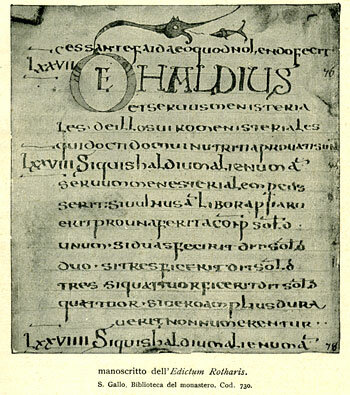 cessante faida eo quod nolendo fecit
LXXVI DE HALDIUS 76
et seruus menisteria
les. de illos uiro menisteriales
qui docti domui nutriti aprouati sun
LXXVIII Si quis haldium alienum a
seruum menesterialem percus
serit: si uulnus
erit pro una ferita conp sol
unum. si duas fecerit det sol
duo. si tres ficerit det sol
tres si quattuor ficerit det sol
quattuor. si uero amplius dura
uerit non numerentur
LXXVIIII Si quis haldium alienum a 78
manoscritto dell'Edictum Rotharis.
S. Gallo, Biblioteca del monastero. Cod. 730.